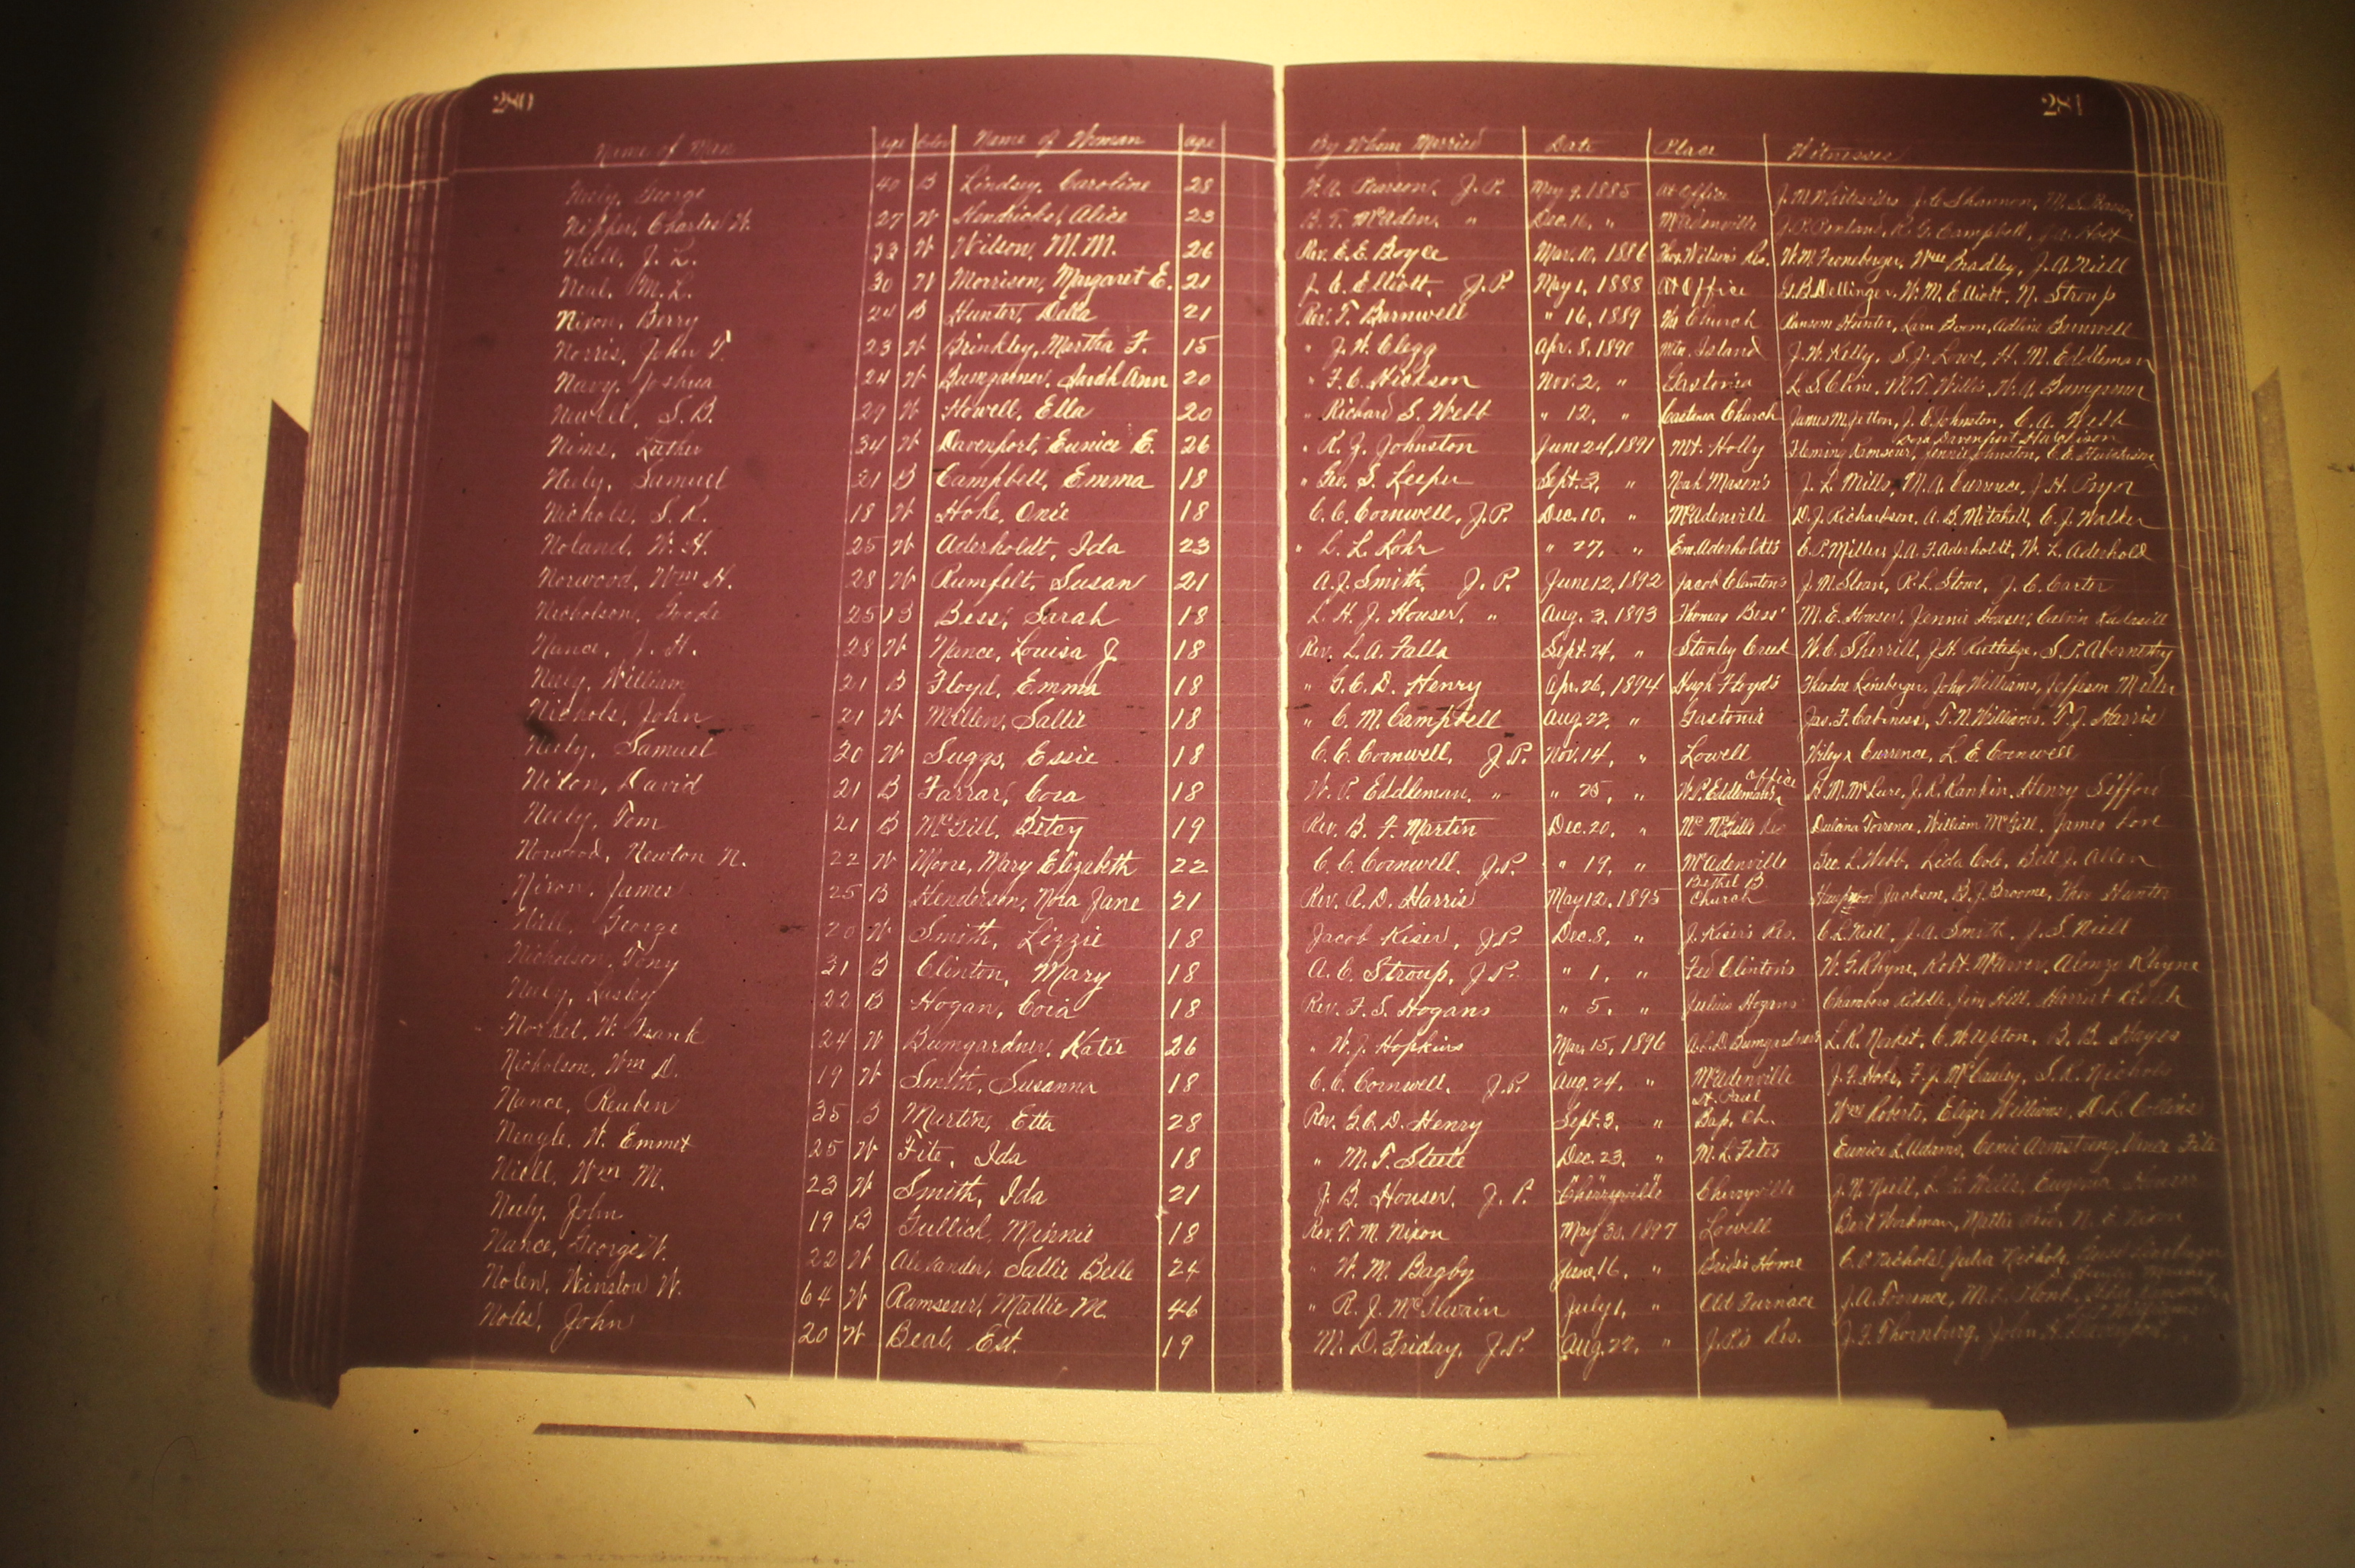 280 281
Name of Man Age Color Name of Woman Age By Whom Married Date Place Witnesses
Neely, George 40 B Lindsey, Caroline 28 W. A. Pearson, J. P. May 9, 1885 At Office J. M. Whitesides J. C. Shannon, M. S.
Nipper, Charles W. 27 W Hendricks, Alice 23 B. T. McAden, " Dec. 16, " McAdenville J. P. Penland, R. G. Campbell, J. A. Holt
Niell, J. L. 33 W Wilson, M. M. 26 Rev. E. E. Boyce Mar. 10, 1886 Thos. Wilson's Re. W. M. Feoneberger, Wm Bradley, J. A. Niell
Neal, M. L. 30 W Morrison, Margaret E. 21 J. C. Elliott, J. P. May 1, 1888 At Office G. B. Dellinger, W. M. Elliott, N. Stroup
Nixon, Berry 24 B Hunter, Della 21 Rev. T. Barnwell " 16, 1889 Church Ransom Hunter, Lara Boom, Adline Barnwell
Norris, John T. 23 W Brinkley, Martha F. 15 " J. W. Clegg Apr. 8, 1890 Mtn. Island J. W. Kelly, S. J. Lowe, H. M. Eddleman
Navy, Joshua 24 W Bumgarner, Sarah Ann 20 " F. C. Hickson Nov. 2, " Gastonia L. S. Cline, M. T. Willis, W. A. Bumgarner
Newell, S. B. 29 W Howell, Ella 20 " Richard S. Webb " 12, " Castania Church James M. Jetton, J. E. Johnston, C. A. Webb
Dora Davenport Hutchison
Nims, Luther 34 W Davenport, Eunice E. 26 " R. J. Johnston June 24, 1891 Mt. Holly Fleming Ramseur, Jennie Johnston, C. E. Hutchison
Neely, Samuel 21 B Campbell, Emma 18 " Geo. S. Leeper Sept. 3, " Noah Mason's J. L. Mills, M. A. Currence, J. H. Pryor
Nichols, S. R. 18 W Hoke, Onie 18 C. C. Cornwell, J. P. Dec. 10, " McAdenville D. J. Richardson, A. B. Mitchell, E. J. Walker
Noland, W. H. 25 W Aderholdt, Ida 23 " L. L. Lohr " 27, " Em. Aderholdt's C. P. Miller, J. A. F. Aderholdt, W. L. Aderhold
Norwood, Wm H. 28 W Rumfelt, Susan 21 A. J. Smith, J. P. June 12, 1892 Jacob Clanton's J. M. Sloan, R. L. Stowe, J. C. Carter
Nicholson, Goode 25 B Bess, Sarah 18 L. H. J. Houser, " Aug. 3, 1893 Thomas Bess' M. E. Houser, Jennie Houser, Calvin Rudasill
Nance, J. H. 28 W Nance, Louisa J. 18 Rev. L. A. Falls Sept. 24, " Stanley Creek W. C. Sherrill, J. H. Rutledge, S. P. Abernethy
Neely, William 21 B Floyd, Emma 18 " G. C. D. Henry Apr. 26, 1894 Hugh Floyd's Theodore Lineberger, John Williams, Jefferson Miller
Nichols, John 21 W Millen, Sallie 18 " C. M. Campbell Aug 22, " Gastonia Jas. F. Cabiness, T. N. Williams, T. J. Harris
Neely, Samuel 20 W Suggs, Essie 18 C. C. Cornwell, J. P. Nov. 14, " Lowell Wiley Currence, L. E. Cornwell
Office
Nixon, David 21 B Farrar, Cora 18 W. P. Eddleman, " " 25, " W. P. Eddleman's H. M. McLure, J. R. Rankin, Henry Sifford
Neely, Tom 21 B McGill, Betsy 19 Rev. B. F. Martin Dec. 20, " Mc McGill's Res Dulaina Torrence, William McGill, James Love
Norwood, Newton N. 22 W Moore, Mary Elizabeth 22 C. C. Cornwell, J. P. " 19, " McAdenville Geo. L. Webb, Lida Cole, Bell J. Allen
Bethel B.
Nixon, James 25 B Henderson, Nora Jane 21 Rev. R. D. Harris May 12, 1895 Church Jackson, B. J. Broome, Thos. Hunter
Niell, George 20 W Smith, Lizzie 18 Jacob Kiser, J. P. Dec. 8, " J. Kiser's Res. C. L. Niell, J. A. Smith, J. S. Niell
Nicholson, Tony 31 B Clinton, Mary 18 A. C. Stroup, J. P. " 1, " Fed Clinton's W. G. Rhyne, Robt. McArver, Alonzo Rhyne
Neely, Lasley 22 B Hogan, Cora 18 Rev. F. S. Hogans " 5, " Julius Hogans' Chambers Riddle, Jim Hill, Harriet
Norket, W. Frank 24 W Bumgardner, Katie 26 " W. J. Hopkins Mar. 15, 1896 A. L. D. Bumgardner's L. R. Norket, C. W. Upton, B. B. Hayes
Nicholson, Wm D. 19 W Smith, Susanna 18 C. C. Cornwell, J. P. Aug. 24, " McAdenville J. F. Hoke, F. J. McCauley, S. R. Nichols
St. Paul
Nance, Reuben 35 B Martin, Etta 28 Rev. G. C. D. Henry Sept. 3, " Bap. Ch. Wm Roberts, Elizer Williams, D. L. Collins
Neagle, W. Emmet 25 W Fite, Ida 18 " M. T. Steele Dec. 23, " M. L. Fite's Eunice L. Adams, Genie Armstrong, Vance Fite
Niell, Wm M. 23 W Smith, Ida 21 J. B. Houser, J. P. Cherryville Cherryville J. N. Niell, L. G. Wells, Eugenia Houser
Neely, John 19 B Gullick, Minnie 18 Rev. T. M. Nixon May 30, 1897 Lowell Bert Workman, Mattie Reid, N. E. Nixon
Nance, George W. 22 W Alexander, Sallie Belle 24 " W. M. Bagby June, 16, " Bride's Home C. P. Nichols, Julia Nichols,
Nolen, Winslow W. 64 W Ramseur, Mattie M. 46 " R. J. McIlwain July 1, " Old Furnace J. A. Torrence,
Noles, John 20 W Beal, Est. 19 M. D. Friday, J. P. Aug. 22, " J. P.'s Res. J. F. Thornburg, John H. Davenport,